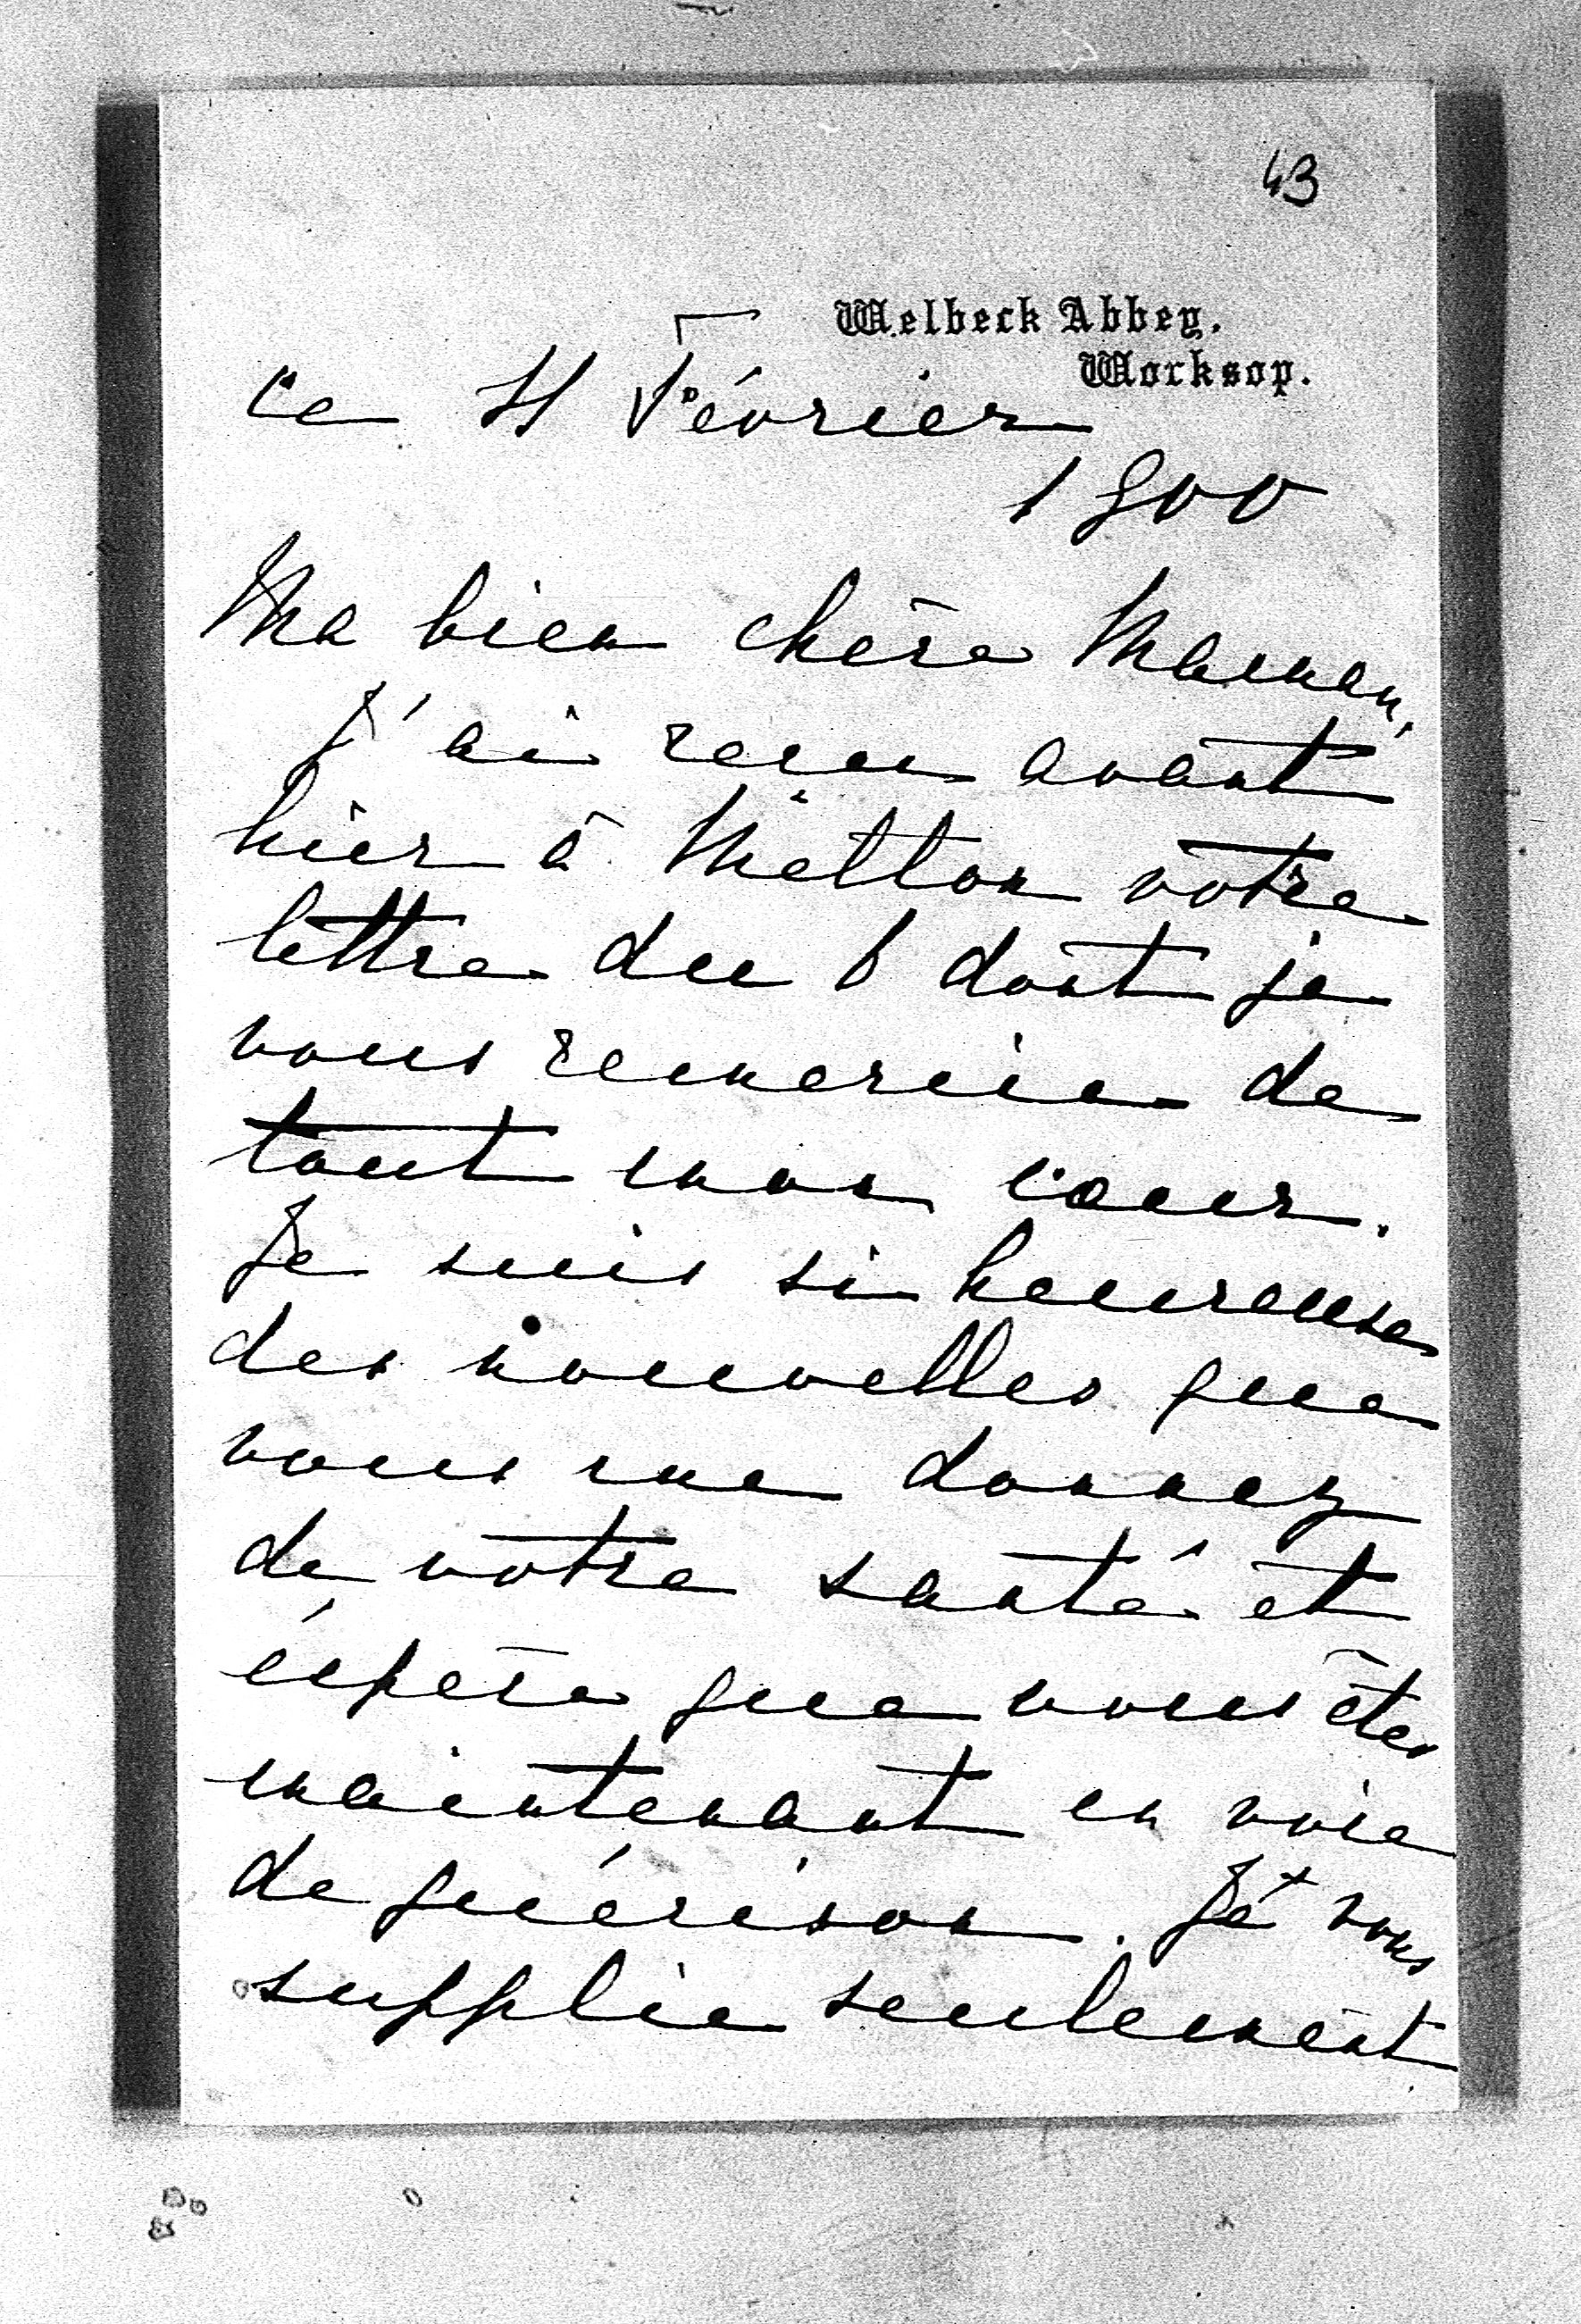 43
Welbeck Abbey.
Worksop.
ce 11 Février
1900
Ma bien chère Maman,
J'ai reçu avant
hier à Melton votre
lettre du 6 dont je
vous remercie de
tout mon coeur.
Je suis si heureuse
des nouvelles que
vous me donnez
de votre santé et
éspère que vous êtes
maintenant en voie
de guérison. Je vous
supplie seulement